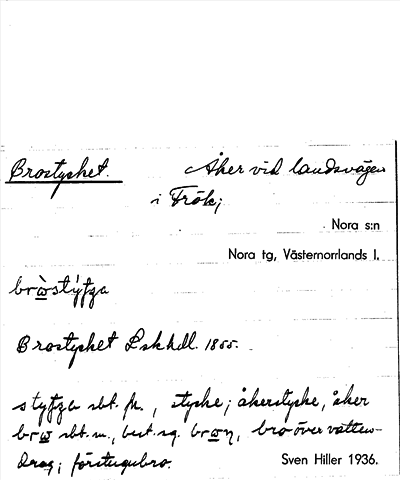 Brostycket. Åker vid landsvägen
i Frök;
Nora s:n
Nora tg, Västernorrlands l.
Brostycket Lskhdl. 1855.
sbt. n., stycke; åkerstycke, åker
sbt. m., best. sg. bro över vatten-
drag; förstugubro. Sven Hiller 1936.